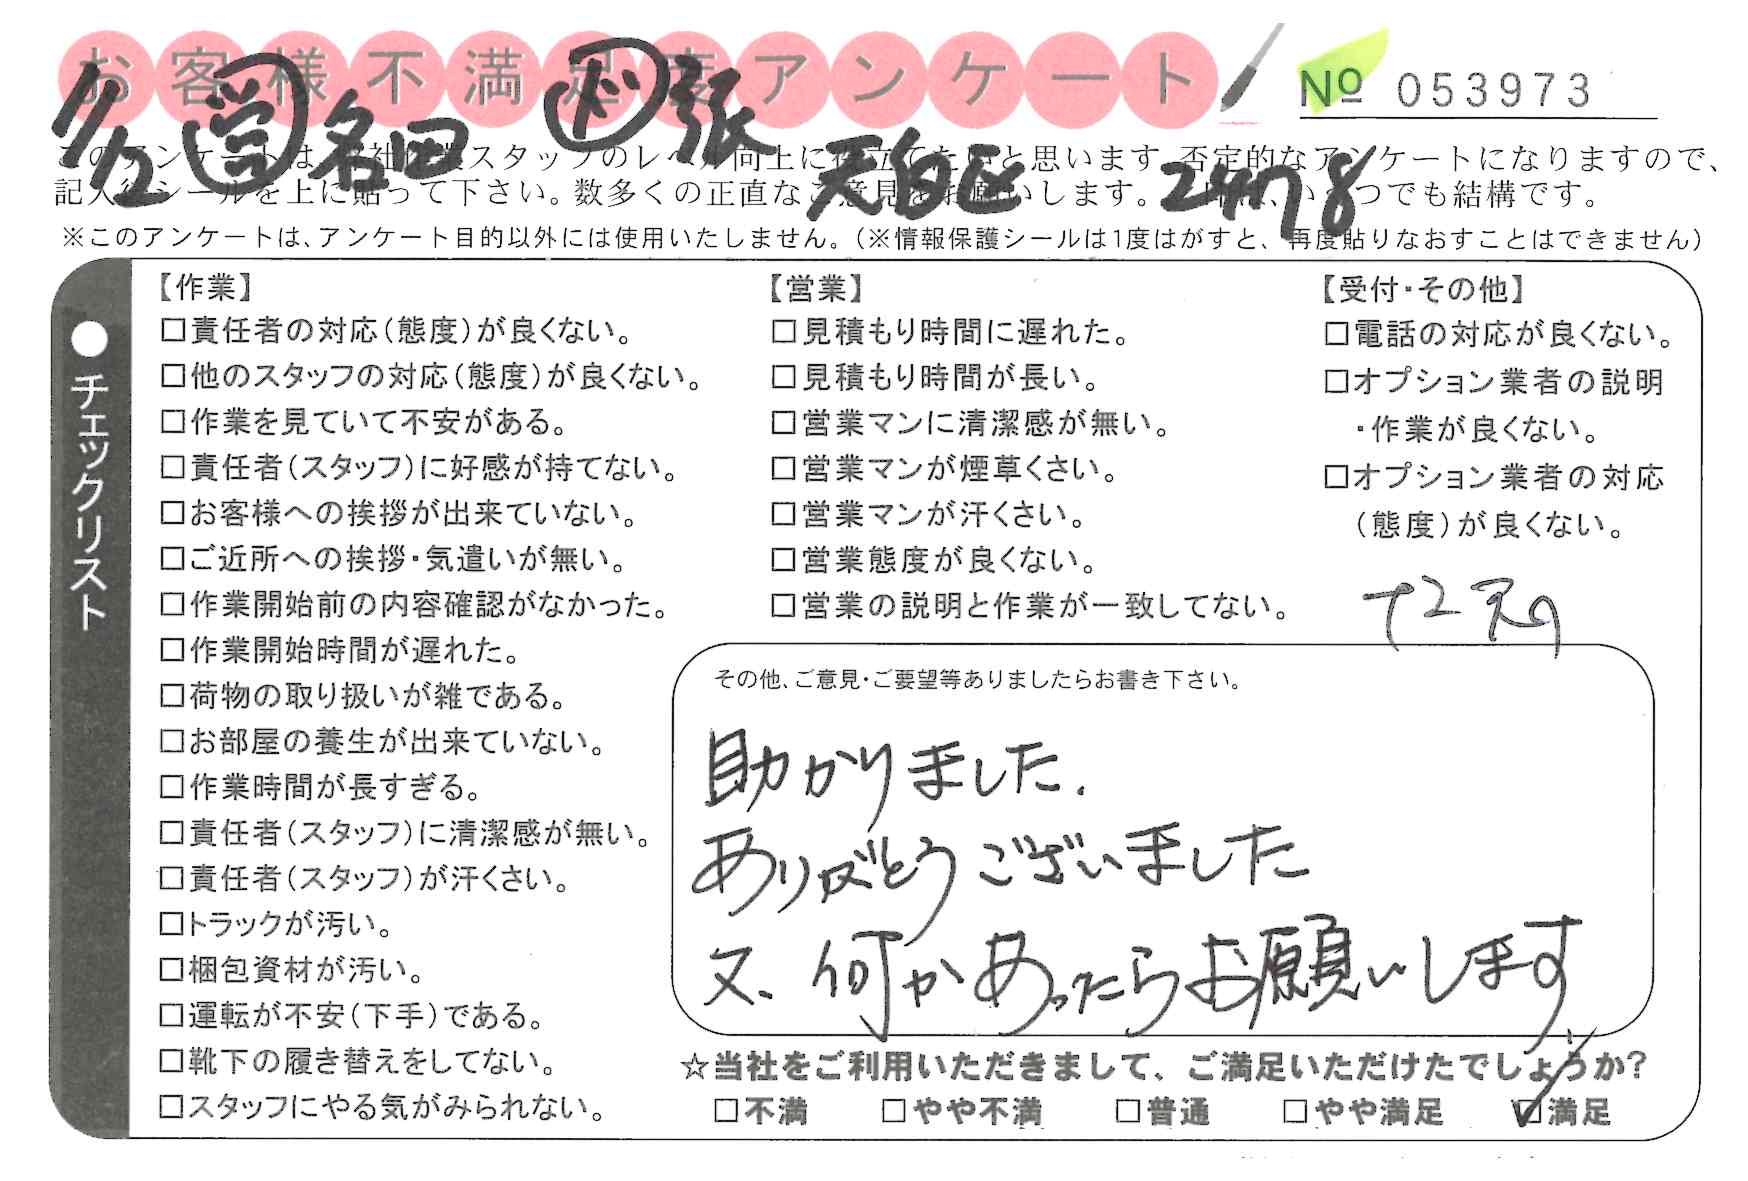 お客様不満足度アンケート
№ 053973
1/12 営 名田 ド 張 天白区
このアンケートは、当社作業スタッフのレベル向上に役立てたいと思います。否定的なアンケートになりますので、
記入後シールを上に貼って下さい。数多くの正直なご意見をお願いします。✓印は、いくつでも結構です。
※このアンケートは、アンケート目的以外には使用いたしません。(※情報保護シールは1度はがすと、再度貼りなおすことはできません)
●チェックリスト
【作業】
□責任者の対応(態度)が良くない。
□他のスタッフの対応(態度)が良くない。
□作業を見ていて不安がある。
□責任者(スタッフ)に好感が持てない。
□お客様への挨拶が出来ていない。
□ご近所への挨拶・気遣いが無い。
□作業開始前の内容確認がなかった。
□作業開始時間が遅れた。
□荷物の取り扱いが雑である。
□お部屋の養生が出来ていない。
□作業時間が長すぎる。
□責任者(スタッフ)に清潔感が無い。
□責任者(スタッフ)が汗くさい。
□トラックが汚い。
□梱包資材が汚い。
□運転が不安(下手)である。
□靴下の履き替えをしてない。
□スタッフにやる気がみられない。
【営業】
□見積もり時間に遅れた。
□見積もり時間が長い。
□営業マンに清潔感が無い。
□営業マンが煙草くさい。
□営業マンが汗くさい。
□営業態度が良くない。
□営業の説明と作業が一致してない。
【受付・その他】
□電話の対応が良くない。
□オプション業者の説明
・作業が良くない。
□オプション業者の対応
(態度)が良くない。
その他、ご意見・ご要望等ありましたらお書き下さい。
助かりました.
ありがとうございました
又、何かあったらお願いします
☆当社をご利用いただきまして、ご満足いただけたでしょうか?
□不満 □やや不満 □普通 □やや満足 ☑満足